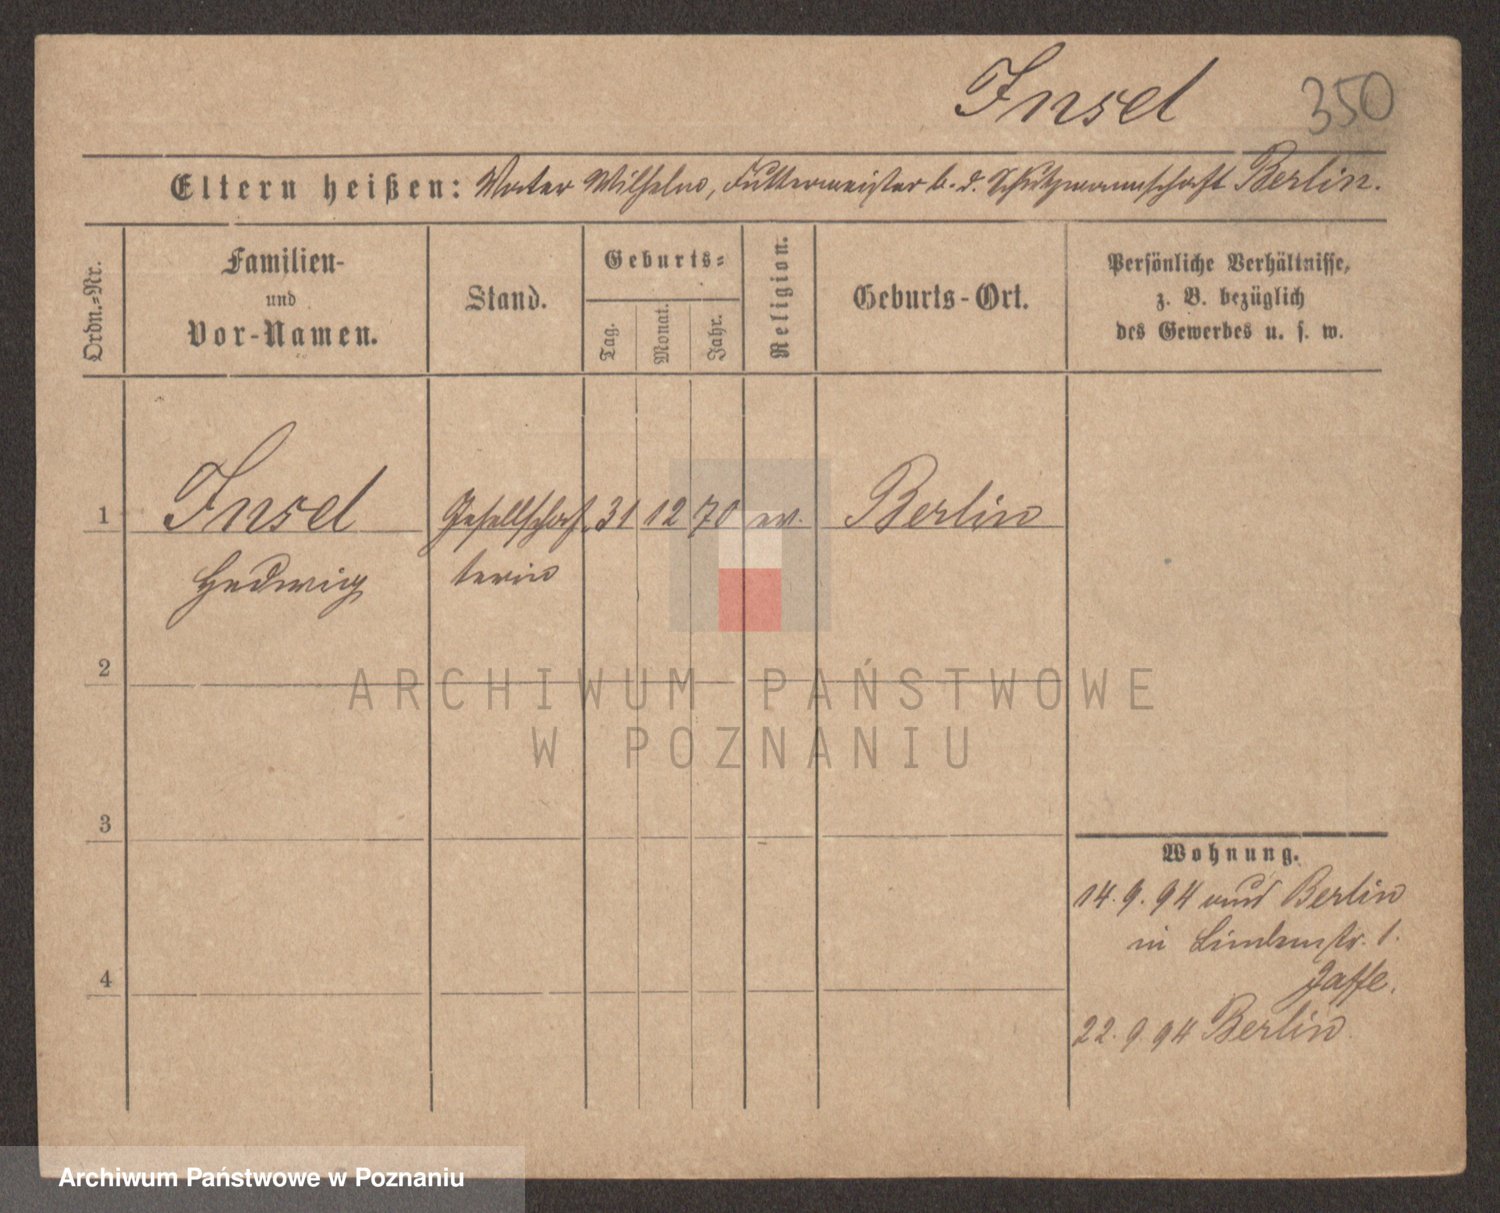 Insel 350
Eltern heißen: Vater Wilhelm, Futtermeister b. d. Schutzmannschaft Berlin.
Ordn.-Nr.
Familien-
und
Vor-Namen.
Stand.
Geburts-
Tag.
Monat.
Jahr.
Religion.
Geburts-Ort.
Persönliche Verhältnisse,
z. B. bezüglich
des Gewerbes u. s. w.
1 Insel Gesellschaf- 31 12 70 ev. Berlin
Hedwig terin
2
ARCHIWUM PAŃSTWOWE
W POZNANIU
3
Wohnung.
14. 9. 94 aus Berlin
in Lindenstr. 1.
Jaffe.
4
22. 9 94 Berlin
Archiwum Państwowe w Poznaniu